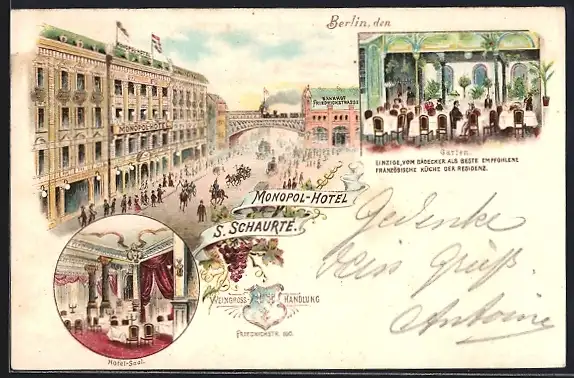 Berlin, den
MONOPOL-HOTEL
BAHNHOF
FRIEDRICHSTRASSE
Garten.
EINZIGE, VOM BÄDECKER ALS BESTE EMPFOHLENE
FRANZÖSISCHE KÜCHE DER RESIDENZ.
MONOPOL-HOTEL
S. SCHAURTÉ.
WEINGROSS-HANDLUNG
FRIEDRICHSTR. 100.
Hotel-Saal.
Gedenke
Gruß
Antoine